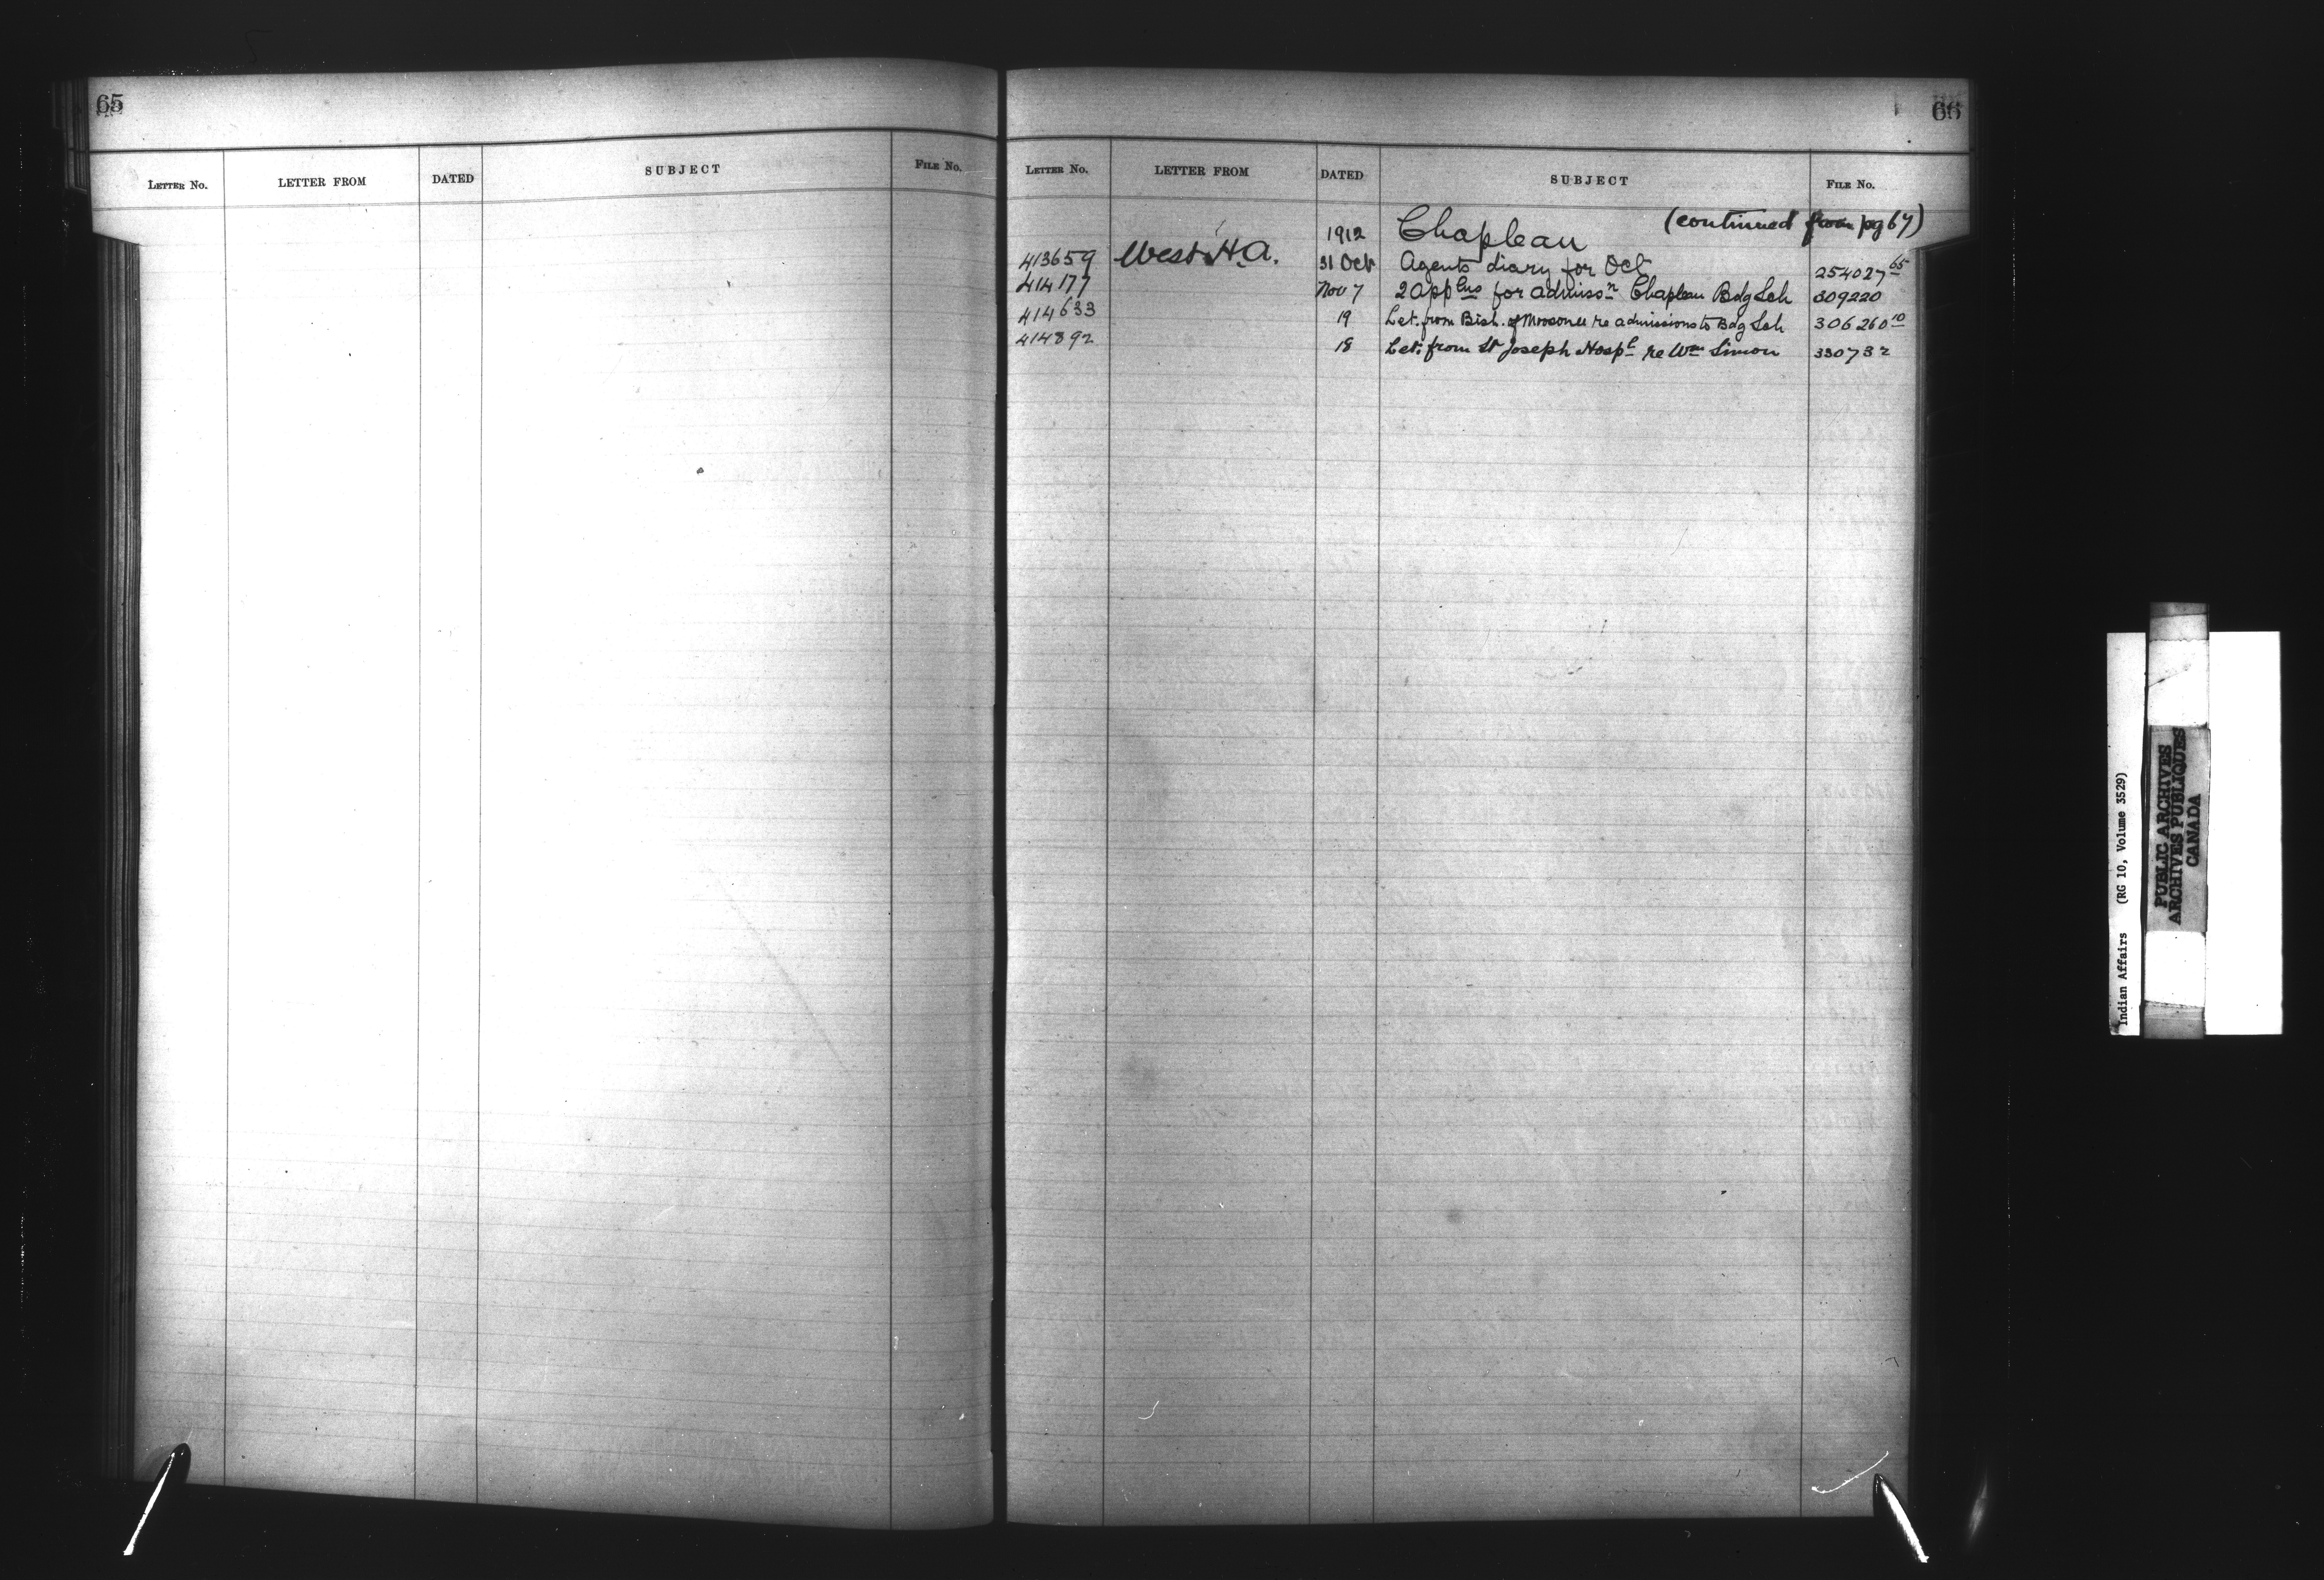 65
LETTER NO. LETTER FROM DATED SUBJECT FILE NO.
66
LETTER NO. LETTER FROM DATED SUBJECT FILE NO.
1912 Chapleau (continued from pg 67)
413659 West H.A. 31 Oct Agents diary for Oct 254027 65
414177 Nov 7 2 applns for admissn Chapleau Bdg Sch 309220
414633 19 Let. from Bish. of Moosonee re admissions to Bdg Sch 306260 10
414892 18 Let. from St Joseph Hospl re Wm Simon 330732
Indian Affairs (RG 10, Volume 3529)
PUBLIC ARCHIVES
ARCHIVES PUBLIQUES
CANADA